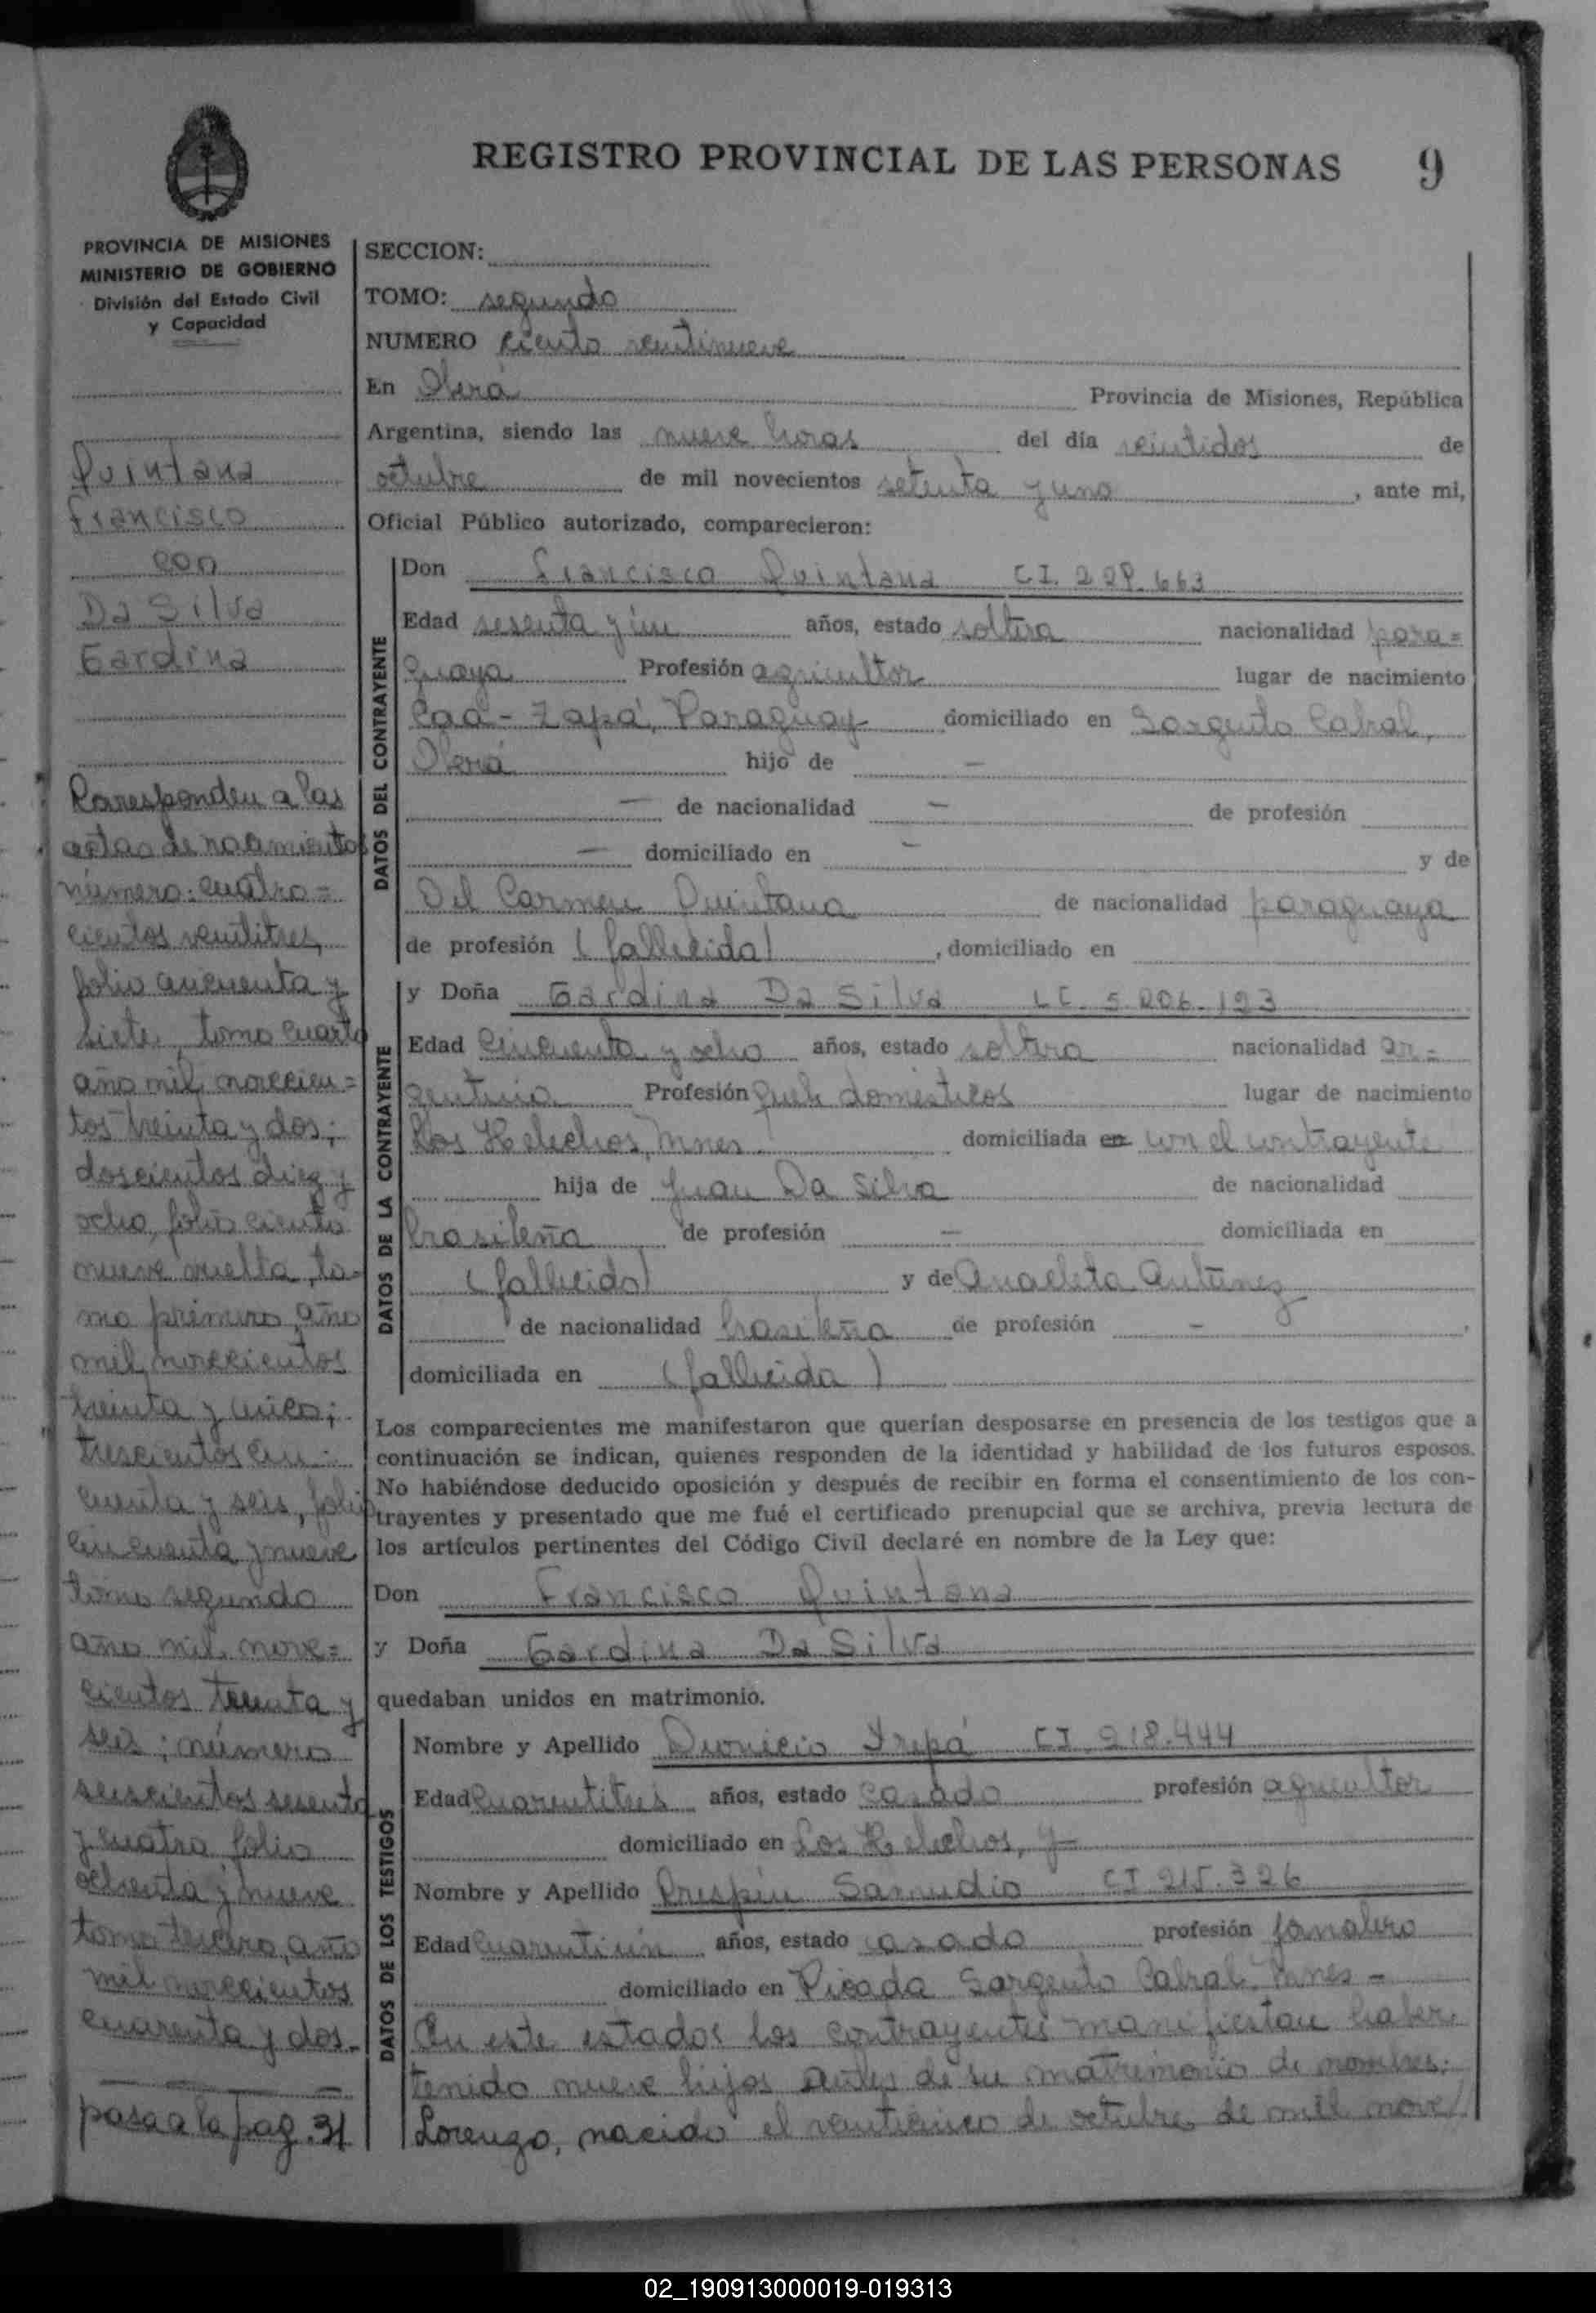 REGISTRO PROVINCIAL DE LAS PERSONAS 9
PROVINCIA DE MISIONES
MINISTERIO DE GOBIERNO
División del Estado Civil
y Capacidad
Quintana
Francisco
con
Da Silva
Gardina
Corresponden a las
actas de nacimientos
número: cuatro=
cientos veintitres,
folio cincuenta y
siete, tomo cuarto
año mil novecien=
tos treinta y dos;
doscientos diez y
ocho, folio ciento
nueve vuelta, to-
mo primero, año
mil novecientos
treinta y cinco;
trescientos cin=
cuenta y seis, folio
cincuenta y nueve
tomo segundo
año mil nove=
cientos treinta y
seis; número
seiscientos sesenta
y cuatro folio
ochenta y nueve
tomo tercero, año
mil novecientos
cuarenta y dos.
pasa a la pag. 31
SECCION:
TOMO: segundo
NUMERO ciento veintinueve
En Oberá Provincia de Misiones, República
Argentina, siendo las nueve horas del día veintidos de
octubre de mil novecientos setenta y uno, ante mi,
Oficial Público autorizado, comparecieron:
DATOS DEL CONTRAYENTE
Don Francisco Quintana CI. 229.663
Edad sesenta y un años, estado soltero nacionalidad para=
guaya Profesión agricultor lugar de nacimiento
Caá-Zapá, Paraguay domiciliado en Sargento Cabral,
Oberá hijo de —
— de nacionalidad — de profesión
— domiciliado en — y de
Del Carmen Quintana de nacionalidad paraguaya
de profesión (fallecida), domiciliado en
DATOS DE LA CONTRAYENTE
y Doña Gardina Da Silva LC. 5.206.193
Edad cincuenta y ocho años, estado soltera nacionalidad ar=
gentina Profesión queh domésticos lugar de nacimiento
Los Helechos, Mnes. domiciliada en con el contrayente
hija de Juan Da Silva de nacionalidad
brasileña de profesión — domiciliada en
(fallecido) y de Anacleta Antunez
de nacionalidad brasileña de profesión —,
domiciliada en (fallecida)
Los comparecientes me manifestaron que querían desposarse en presencia de los testigos que a
continuación se indican, quienes responden de la identidad y habilidad de los futuros esposos.
No habiéndose deducido oposición y después de recibir en forma el consentimiento de los con-
trayentes y presentado que me fué el certificado prenupcial que se archiva, previa lectura de
los artículos pertinentes del Código Civil declaré en nombre de la Ley que:
Don Francisco Quintana
y Doña Gardina Da Silva
quedaban unidos en matrimonio.
DATOS DE LOS TESTIGOS
Nombre y Apellido Dionicio CI. 218.444
Edad cuarentitres años, estado casado profesión agricultor
domiciliado en Los Helechos, y—
Nombre y Apellido Crespín Samudio CI 215.326
Edad cuarentiún años, estado casado profesión jornalero
domiciliado en Picada Sargento Cabral. Mnes-
En este estado los contrayentes manifiestan haber
tenido nueve hijos antes de su matrimonio de nombres:
Lorenzo, nacido el veinticinco de octubre de mil nove/
02_190913000019-019313